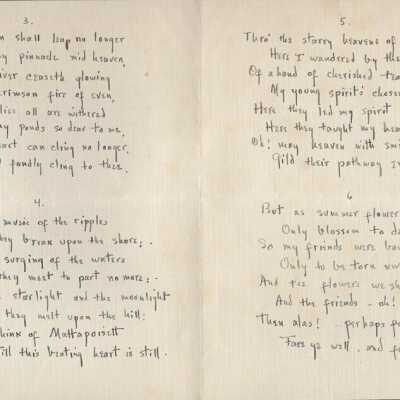 3.
shall leap no longer
pinnacle mid heaven,
ceaseth glowing
crimson fire of even,
all are withered
ponds so dear to me,
can cling no longer
fondly cling to thee.
4.
music of the ripples
they break upon the shore;
surging of the waters
they meet to part no more;
starlight and the moonlight
they melt upon the hill:
think of Mattapoisett
till this beating heart is still.
5.
Thro' the starry heavens of
Here I wandered by the
Of a band of cherished
My young spirit's chosen
Here they led my spirit
Here they taught my
Oh! may heaven with
Gild their pathway
6
But as summer flowers
Only blossom to
So my friends were
Only to be torn
And the flowers we
And the friends - oh!
Then alas! - perhaps
Fare ye well, and